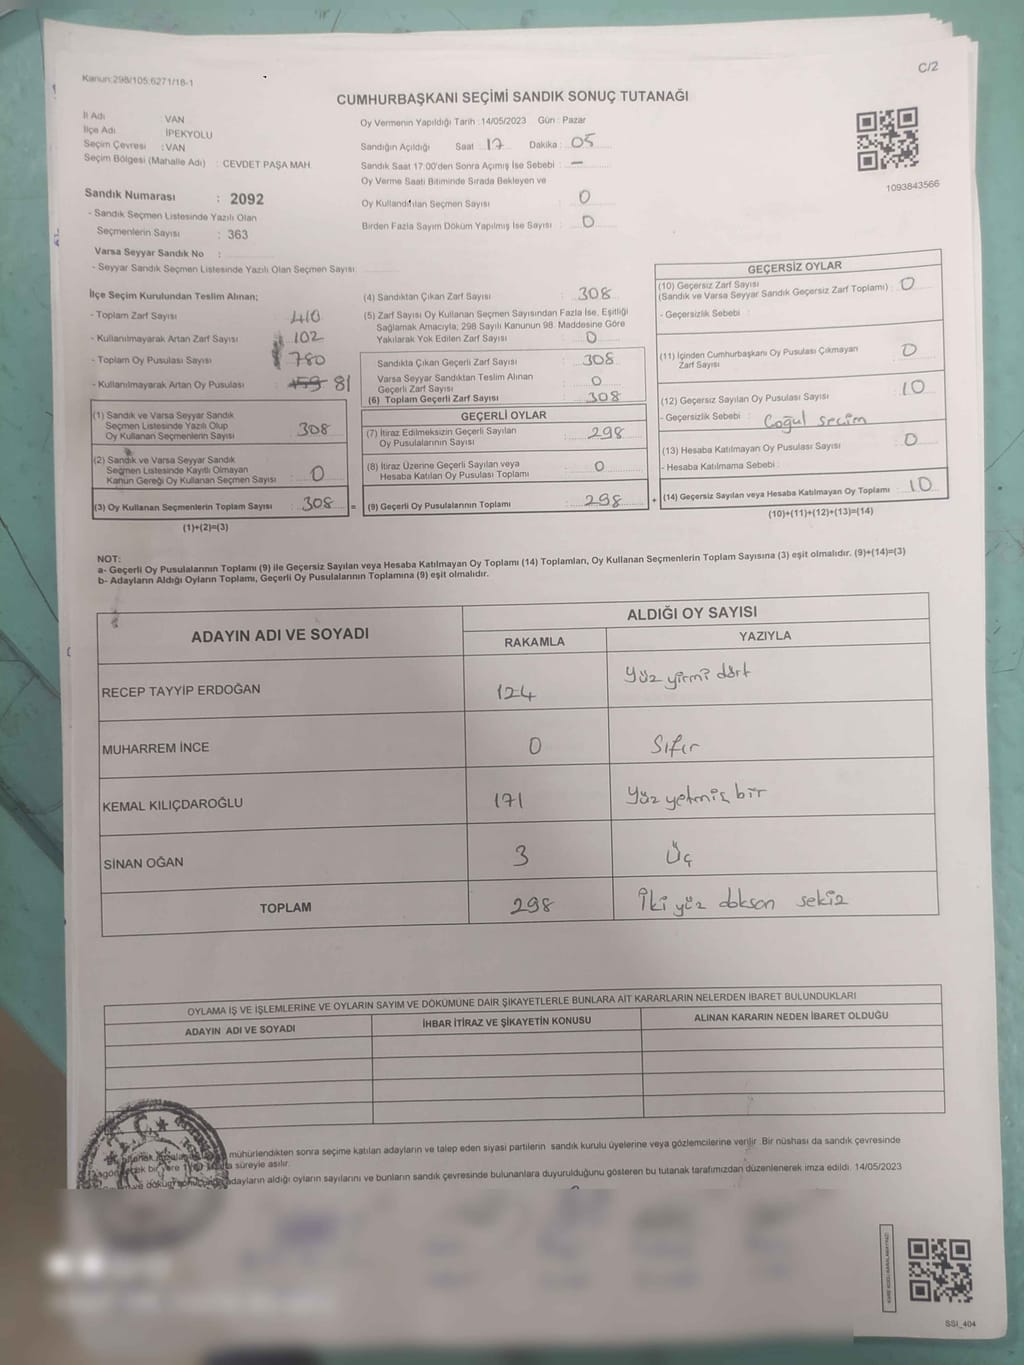 Kanun:298/105.6271/18-1
C/2
CUMHURBAŞKANI SEÇİMİ SANDIK SONUÇ TUTANAĞI
İl Adı : VAN
İlçe Adı : İPEKYOLU
Seçim Çevresi : VAN
Seçim Bölgesi (Mahalle Adı) : CEVDET PAŞA MAH.
Sandık Numarası : 2092
- Sandık Seçmen Listesinde Yazılı Olan
Seçmenlerin Sayısı : 363
Varsa Seyyar Sandık No :
- Seyyar Sandık Seçmen Listesinde Yazılı Olan Seçmen Sayısı:
Oy Vermenin Yapıldığı Tarih :14/05/2023 Gün : Pazar
Sandığın Açıldığı Saat : 17 Dakika : 05
Sandık Saat 17:00'den Sonra Açımış İse Sebebi : -
Oy Verme Saati Bitiminde Sırada Bekleyen ve
Oy Kullandırılan Seçmen Sayısı : 0
Birden Fazla Sayım Döküm Yapılmış İse Sayısı : 0
1093843566
İlçe Seçim Kurulundan Teslim Alınan;
- Toplam Zarf Sayısı : 410
- Kullanılmayarak Artan Zarf Sayısı : 102
- Toplam Oy Pusulası Sayısı : 780
- Kullanılmayarak Artan Oy Pusulası : 159 81
(1) Sandık ve Varsa Seyyar Sandık
Seçmen Listesinde Yazılı Olup
Oy Kullanan Seçmenlerin Sayısı : 308
(2) Sandık ve Varsa Seyyar Sandık
Seçmen Listesinde Kayıtlı Olmayan
Kanun Gereği Oy Kullanan Seçmen Sayısı : 0
(3) Oy Kullanan Seçmenlerin Toplam Sayısı : 308 =
(1)+(2)=(3)
(4) Sandıktan Çıkan Zarf Sayısı : 308
(5) Zarf Sayısı Oy Kullanan Seçmen Sayısından Fazla İse, Eşitliği
Sağlamak Amacıyla; 298 Sayılı Kanunun 98. Maddesine Göre
Yakılarak Yok Edilen Zarf Sayısı : 0
Sandıkta Çıkan Geçerli Zarf Sayısı : 308
Varsa Seyyar Sandıktan Teslim Alınan
Geçerli Zarf Sayısı : 0
(6) Toplam Geçerli Zarf Sayısı : 308
GEÇERLİ OYLAR
(7) İtiraz Edilmeksizin Geçerli Sayılan
Oy Pusulalarının Sayısı : 298
(8) İtiraz Üzerine Geçerli Sayılan veya
Hesaba Katılan Oy Pusulası Toplamı : 0
(9) Geçerli Oy Pusulalarının Toplamı : 298 +
GEÇERSİZ OYLAR
(10) Geçersiz Zarf Sayısı
(Sandık ve Varsa Seyyar Sandık Geçersiz Zarf Toplamı) : 0
- Geçersizlik Sebebi :
(11) İçinden Cumhurbaşkanı Oy Pusulası Çıkmayan
Zarf Sayısı : 0
(12) Geçersiz Sayılan Oy Pusulası Sayısı : 10
- Geçersizlik Sebebi : Çoğul seçim
(13) Hesaba Katılmayan Oy Pusulası Sayısı : 0
- Hesaba Katılmama Sebebi :
(14) Geçersiz Sayılan veya Hesaba Katılmayan Oy Toplamı : 10
(10)+(11)+(12)+(13)=(14)
NOT:
a- Geçerli Oy Pusulalarının Toplamı (9) ile Geçersiz Sayılan veya Hesaba Katılmayan Oy Toplamı (14) Toplamları, Oy Kullanan Seçmenlerin Toplam Sayısına (3) eşit olmalıdır. (9)+(14)=(3)
b- Adayların Aldığı Oyların Toplamı, Geçerli Oy Pusulalarının Toplamına (9) eşit olmalıdır.
ADAYIN ADI VE SOYADI
ALDIĞI OY SAYISI
RAKAMLA YAZIYLA
RECEP TAYYİP ERDOĞAN 124 Yüz yirmi dört
MUHARREM İNCE 0 Sıfır
KEMAL KILIÇDAROĞLU 171 Yüz yetmiş bir
SİNAN OĞAN 3 Üç
TOPLAM 298 İki yüz doksan sekiz
OYLAMA İŞ VE İŞLEMLERİNE VE OYLARIN SAYIM VE DÖKÜMÜNE DAİR ŞİKAYETLERLE BUNLARA AİT KARARLARIN NELERDEN İBARET BULUNDUKLARI
ADAYIN ADI VE SOYADI İHBAR İTİRAZ VE ŞİKAYETİN KONUSU ALINAN KARARIN NEDEN İBARET OLDUĞU
mühürlendikten sonra seçime katılan adayların ve talep eden siyasi partilerin sandık kurulu üyelerine veya gözlemcilerine verilir. Bir nüshası da sandık çevresinde
süreyle asılır.
adayların aldığı oyların sayılarını ve bunların sandık çevresinde bulunanlara duyurulduğunu gösteren bu tutanak tarafımızdan düzenlenerek imza edildi. 14/05/2023
SSI_404